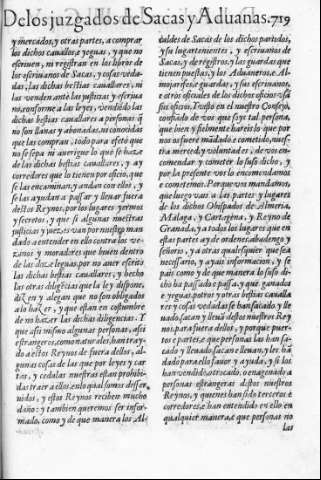 De los juzgados de Sacas y Aduanas. 719
y mercados, y otras partes, a comprar
los dichos cauallos e yeguas, y que no
escriuen, ni registran en los libros de
los escriuanos de Sacas, y cosas veda-
das, las dichas bestias cauallares, ni
las venden ante las justicias y escriua
nos, conforme a las leyes, vendido las
dichas bestias cauallares a personas q̃
no son llanas y abonadas, ni conocidas
que las compran, todo para efeto que
no se sepa ni auerigue lo que se haze
de las dichas bestias cauallares, y ay
corredores que lo tienen por oficio, que
se las encaminan, y andan con ellos, y
se las ayudan a passar y lleuar fuera
destos Reynos, por los lugares yermos
y secretos, y que si algunas nuestras
justicias y juezes van por nuestro man
dado a entender en ello contra los ve-
zinos y moradores que biuen dentro
de las doze leguas, por no auer escrito
las dichas bestias cauallares, y hecho
las otras diligẽcias que la ley dispone,
dizen y alegan que no son obligados
a lo hazer, y que estan en costumbre
de no hazer las dichas diligencias. Y
que assi mismo algunas personas, assi
estrangeros, como naturales, han tray-
do a estos Reynos de fuera dellos, al-
gunas cosas de las que por leyes y car
tas, y cedulas nuestras estan prohibi-
das traer a ellos, en lo qual somos desser
uidos, y estos Reynos reciben mucho
daño: y tambien queremos ser infor-
mado, como y de que manera los Al-
caldes de Sacas de los dichos partidos,
y sus lugartenientes, y escriuanos de
Sacas, y de registros, y los guardas que
tienen puestos, y los Aduaneros, e Al-
mojarifes, e guardas, y sus escriuanos,
e otros oficiales de los dichos oficios vsã
sus oficios. Visto en el nuestro Consejo,
confiado de vos que soys tal persona,
que bien y fielmente hareis lo que por
nos os fuere mãdado, e cometido, nues-
tra merced, y voluntad es, de vos en-
comendar y cometer lo suso dicho, y
por la presente vos lo encomendamos
e cometemos. Porque vos mandamos,
que luego vais a las partes y lugares
de los dichos Obispados de Almeria,
Malaga, y Cartagena, y Reyno de
Granada, y a todos los lugares que en
estas partes ay de ordenes, abadengo, y
señorios, y a otras qualesquier que sea
necessario, y ayais informacion, y se
pais como y de que manera lo suso di-
cho ha passado e passa, y que ganados
e yeguas, potros y otras bestias caualla
res y cosas vedadas se han sacado y lle
uado, sacan y lleuã destos nuestros Rey
nos, para fuera dellos, y porque puer-
tos e partes, e que personas las han sa-
cado y lleuado, sacan e lleuan, y les hã
dado para ello fauor y ayuda, y si los
han vendido, o trocado, o enagenado a
personas estrangeras destos nuestros
Reynos, y quienes han sido terceros e
corredores, e han entendido en ello en
qualquier manera, e que personas no
las